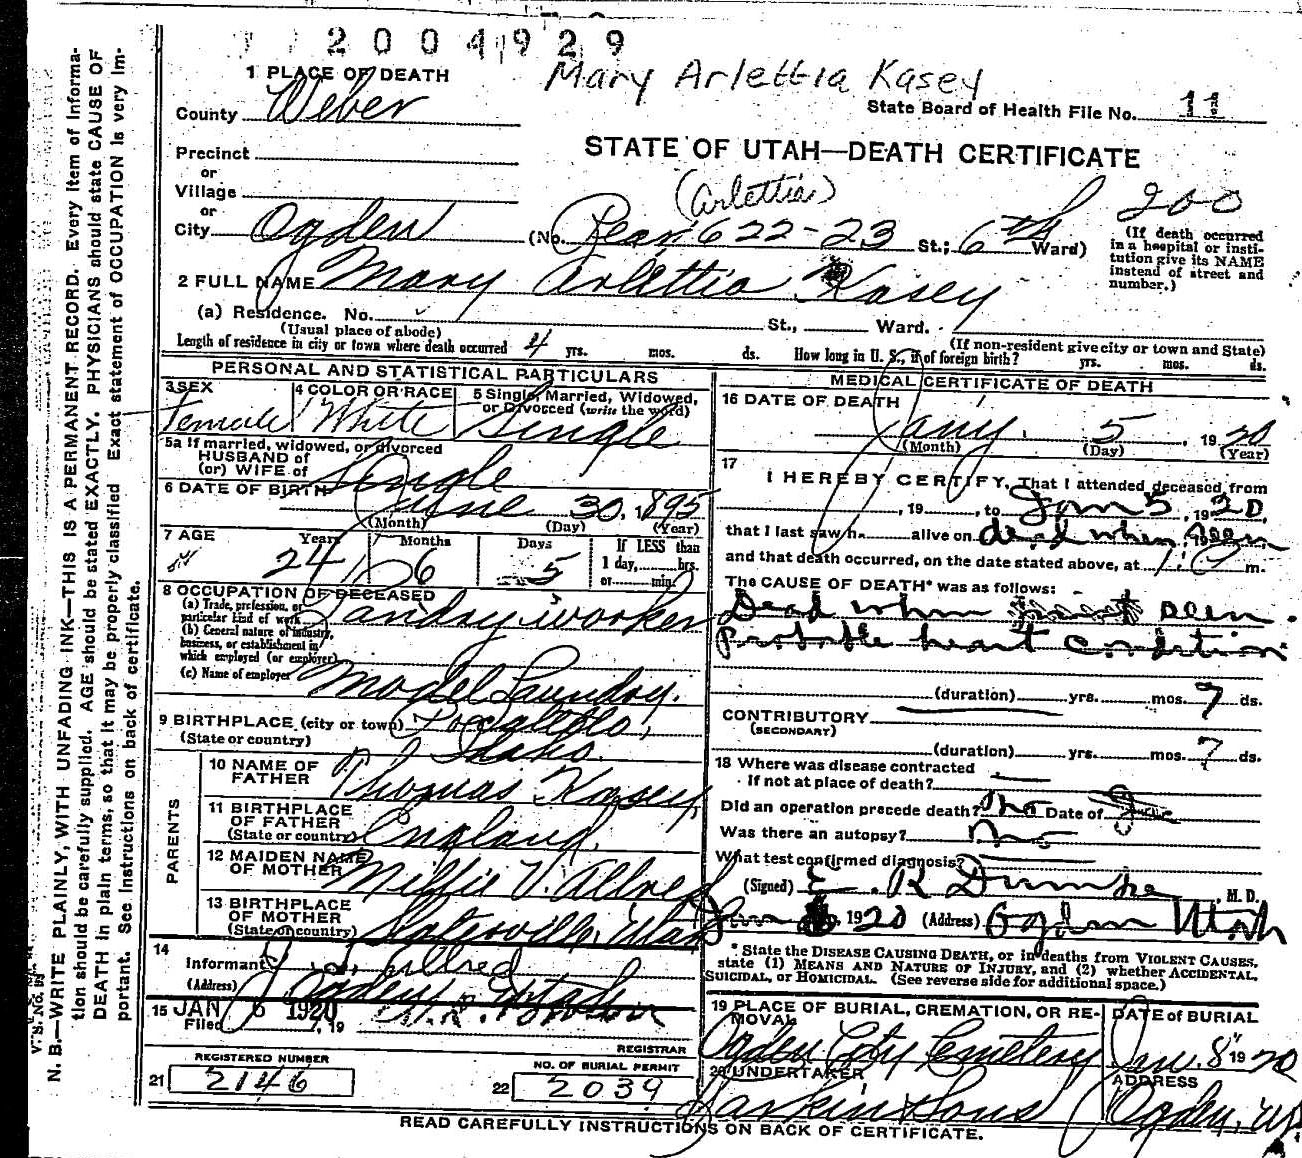 2004929
Mary Arlettia Kasey
1 PLACE OF DEATH
County Weber
State Board of Health File No. 11
Precinct
or
Village
or
STATE OF UTAH—DEATH CERTIFICATE
(Arlettia)
200
City Ogden (No. Rear 622-23 St.; 6th Ward)
(If death occurred in a hospital or institution give its NAME instead of street and number.)
2 FULL NAME Mary Arlettia Kasey
(a) Residence. No. St., Ward.
(Usual place of abode) (If non-resident give city or town and State)
Length of residence in city or town where death occurred 4 yrs. mos. ds. How long in U. S., if of foreign birth? yrs. mos. ds.
PERSONAL AND STATISTICAL PARTICULARS
3 SEX Female
4 COLOR OR RACE White
5 Single, Married, Widowed, or Divorced (write the word) Single
5a If married, widowed, or divorced
HUSBAND of
(or) WIFE of Single
6 DATE OF BIRTH June 30, 1895
(Month) (Day) (Year)
7 AGE Years Months Days If LESS than
24 6 5 1 day, hrs.
or min.
8 OCCUPATION OF DECEASED
(a) Trade, profession, or particular kind of work Landry worker
(b) General nature of industry, business, or establishment in which employed (or employer)
(c) Name of employer Model Laundry.
9 BIRTHPLACE (city or town) Pocatello,
(State or country) Idaho.
PARENTS
10 NAME OF FATHER Thomas Kasey,
11 BIRTHPLACE OF FATHER (State or country) England.
12 MAIDEN NAME OF MOTHER Millie V. Allred
13 BIRTHPLACE OF MOTHER (State or country) Slaterville, Utah
14
Informant J. Allred
(Address) Ogden, Utah
15 JAN 6 1920
Filed , 19
REGISTRAR
REGISTERED NUMBER
21 2146
NO. OF BURIAL PERMIT
22 2039
MEDICAL CERTIFICATE OF DEATH
16 DATE OF DEATH
Jany. 5, 1920
(Month) (Day) (Year)
17 I HEREBY CERTIFY, That I attended deceased from
, 19 , to Jan 5, 1920,
that I last saw h alive on dead when seen, 19
and that death occurred, on the date stated above, at m.
The CAUSE OF DEATH* was as follows:
Dead when seen.
Probable heart condition
(duration) yrs. mos. ? ds.
CONTRIBUTORY
(SECONDARY)
(duration) yrs. mos. ? ds.
18 Where was disease contracted
If not at place of death?
Did an operation precede death? no Date of
Was there an autopsy? no
What test confirmed diagnosis?
(Signed) E. R Dumke M. D.
Jan 1920 (Address) Ogden Utah
* State the DISEASE CAUSING DEATH, or in deaths from VIOLENT CAUSES, state (1) MEANS AND NATURE OF INJURY, and (2) whether ACCIDENTAL, SUICIDAL, or HOMICIDAL. (See reverse side for additional space.)
19 PLACE OF BURIAL, CREMATION, OR REMOVAL
Ogden City Cemetery
DATE of BURIAL
Jan. 8" 1920
20 UNDERTAKER
Larkin & Sons
ADDRESS
Ogden, Ut
READ CAREFULLY INSTRUCTIONS ON BACK OF CERTIFICATE.
N. B.—WRITE PLAINLY, WITH UNFADING INK—THIS IS A PERMANENT RECORD. Every item of information should be carefully supplied. AGE should be stated EXACTLY. PHYSICIANS should state CAUSE OF DEATH in plain terms, so that it may be properly classified. Exact statement of OCCUPATION is very important. See instructions on back of certificate.